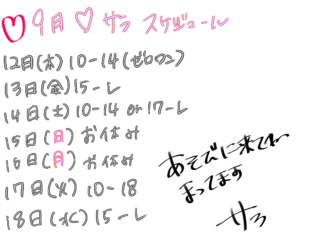 ♡9月♡サラ スケジュール
12日(木)10-14(ゼロワン)
13日(金)15-L
14日(土)10-14 or 17-L
15日(日)お休み
16日(月)お休み
17日(火)10-18
18日(水)15-L
あそびに来てねー
まってます
サラ